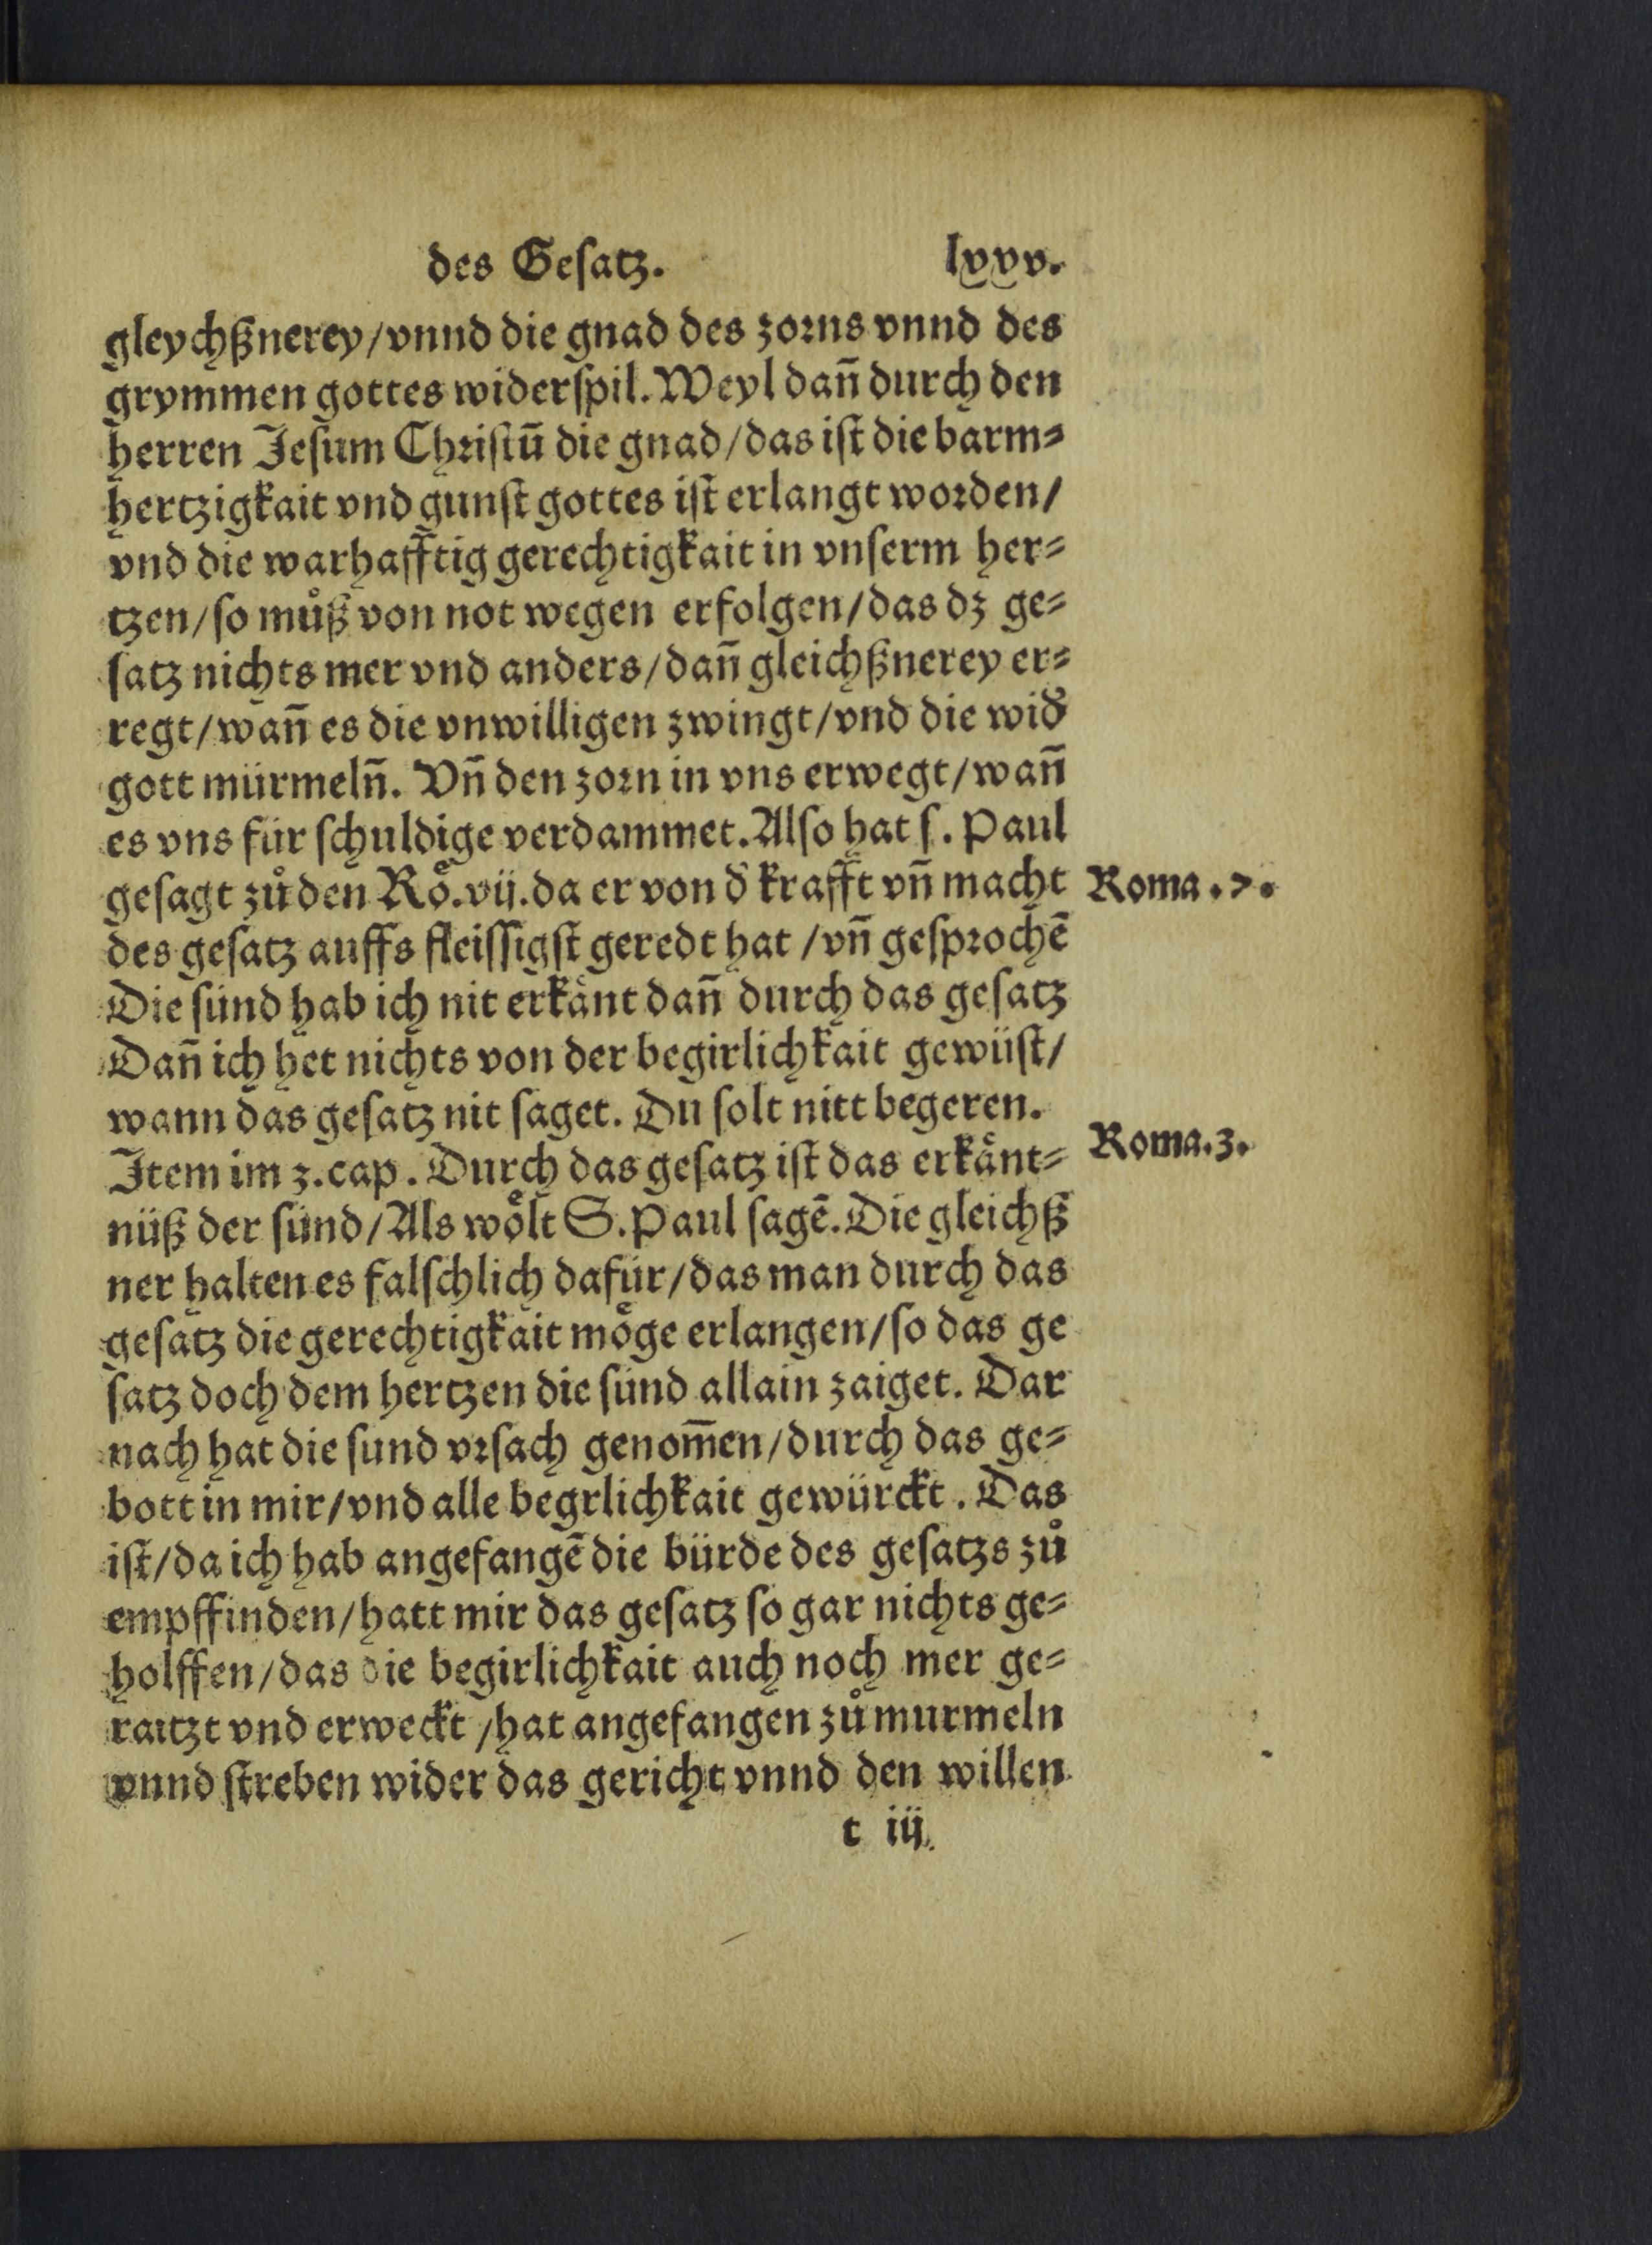 des Gesatz. lxxv.
gleychßnerey/vnnd die gnad des zorns vnnd des
grymmen gottes widerspil. Weyl dañ durch den
herren Jesum Christū die gnad/das ist die barm=
hertzigkait vnd gunst gottes ist erlangt worden/
vnd die warhafftig gerechtigkait in vnserm her=
tzen/so můß von not wegen erfolgen/das dz ge=
satz nichts mer vnd anders/dañ gleichßnerey er=
regt/wañ es die vnwilligen zwingt/vnd die wid̕
gott mürmelñ. Vñ den zorn in vns erwegt/wañ
es vns für schuldige verdammet. Also hat s. Paul
gesagt zů den Roͤ. vij. da er von d̕ krafft vñ macht
Roma. 7.
des gesatz auffs fleissigst geredt hat/vñ gesprochē
Die sünd hab ich nit erkaͤnt dañ durch das gesatz
Dañ ich het nichts von der begirlichkait gewüst/
wann das gesatz nit saget. Du solt nitt begeren.
Item im 3. cap. Durch das gesatz ist das erkaͤnt=
Roma. 3.
nüß der sünd/Als woͤlt S. Paul sagē. Die gleichß
ner halten es falschlich dafür/das man durch das
gesatz die gerechtigkait moͤge erlangen/so das ge
satz doch dem hertzen die sünd allain zaiget. Dar
nach hat die sund vrsach genom̄en/durch das ge=
bott in mir/vnd alle begrlichkait gewürckt. Das
ist/da ich hab angefangē die bürde des gesatzs zů
empffinden/hatt mir das gesatz so gar nichts ge=
holffen/das die begirlichkait auch noch mer ge=
raitzt vnd erweckt/hat angefangen zů murmeln
vnnd streben wider das gericht vnnd den willen
t iij.